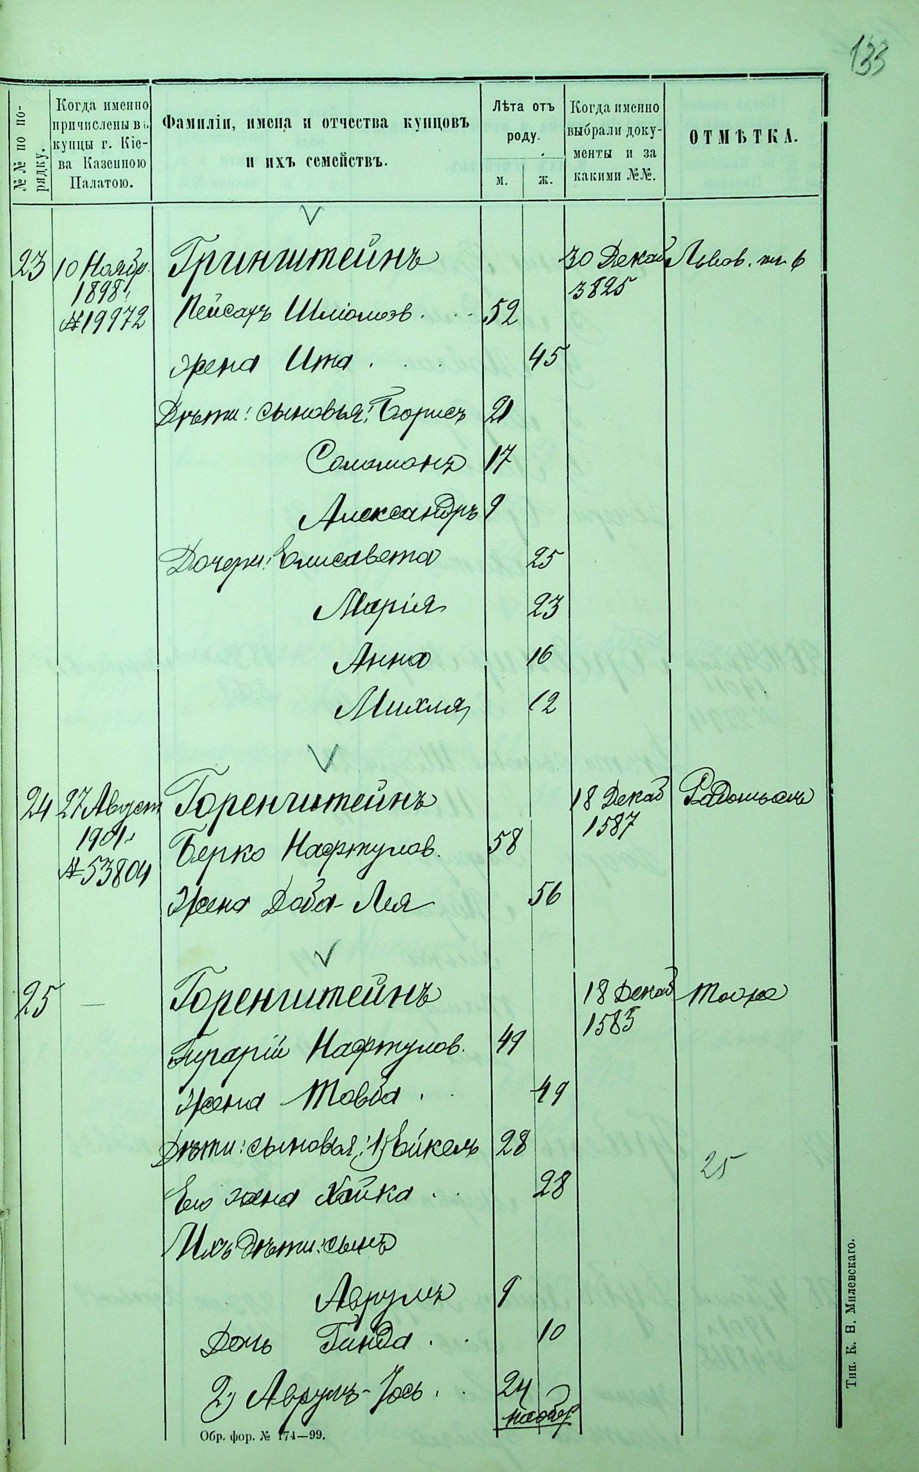 133
№№ по по-
рядку.
Когда именно
причислены въ
купцы г. Кіе-
ва Казенною
Палатою.
Фамиліи, имена и отчества купцовъ
и ихъ семействъ.
Лѣта отъ
роду.
м.
ж.
Когда именно
выбрали доку-
менты и за
какими №№.
ОТМѢТКА.
23 10 Ноябр. Гринштейнъ 30 Декаб
1898 г. 3825
№ 19972 Пейсахъ Шліомов. 52
жена Ита . . 45
Дѣти: сыновья: Борисъ 21
Соломонъ 17
Александръ 9
Дочери: Елисавета 25
Марія 23
Анна 16
Михля 12
24 27 Август Горенштейнъ 18 Декаб Радомысль
1901 г. 1587
№ 53804 Берко Нафтулов. 58
Жена Доба-Лея 56
25 — Горенштейнъ 18 Декаб
1585
Нафтулов. 49
Жена Товба . . 49
Дѣти: сыновья: 1) Вайкель 28
Его жена Хайка . . 28
25
Ихъ дѣти: сынъ
Аврумъ 9
Дочь Гинда . . 10
2) Аврумъ-Іось . . 24
Обр. фор. № 174—99.
Тип. К. Н. Милевскаго.